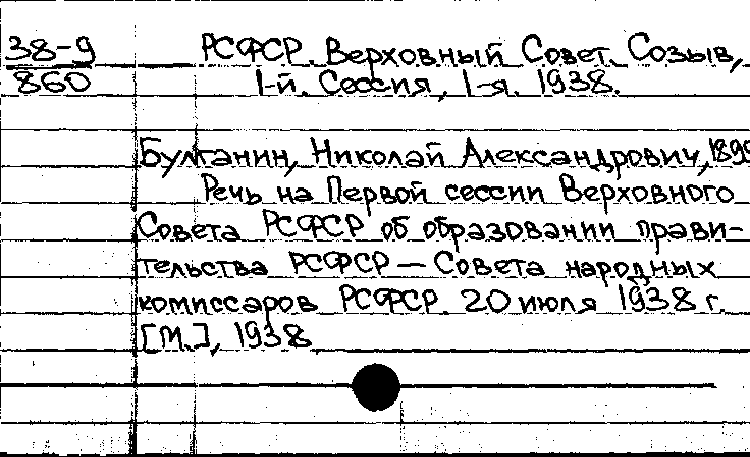 38-9
860
РСФСР. Верховный Совет. Созыв,
1-й. Сессия, 1-я. 1938.
Булганин, Николай Александрович, 1895
Речь на Первой сессии Верховного
Совета РСФСР об образовании прави-
тельства РСФСР — Совета народных
комиссаров РСФСР. 20 июля 1938 г.
[М.], 1938